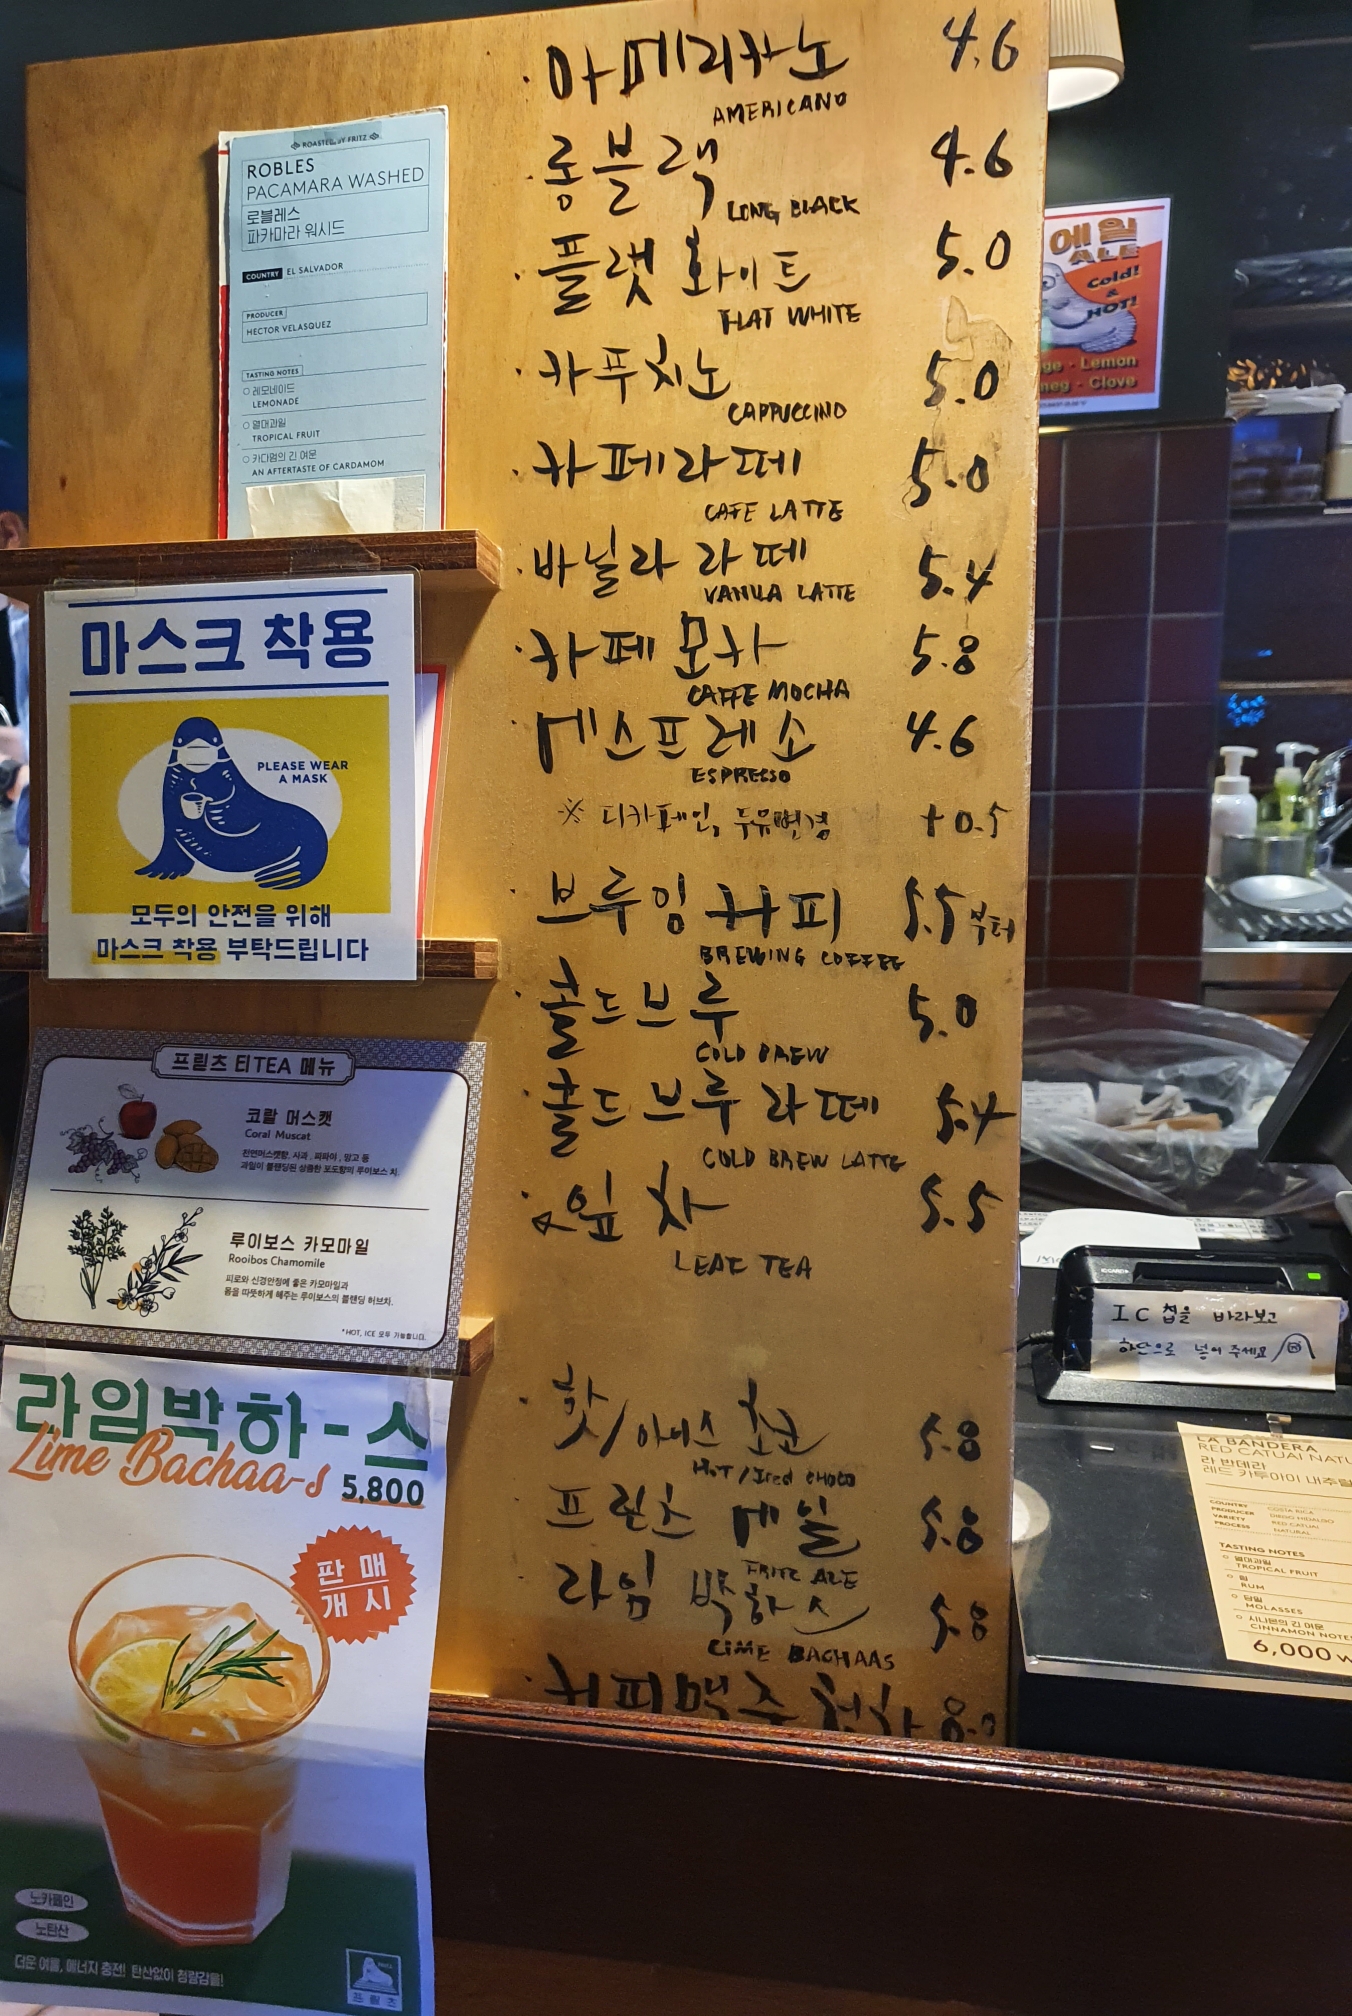 ROASTED BY FRITZ
ROBLES
PACAMARA WASHED
로블레스
파카마라 워시드
COUNTRY EL SALVADOR
PRODUCER
HECTOR VELASQUEZ
TASTING NOTES
레모네이드
LEMONADE
열대과일
TROPICAL FRUIT
카다멈의 긴 여운
AN AFTERTASTE OF CARDAMOM
마스크 착용
PLEASE WEAR
A MASK
모두의 안전을 위해
마스크 착용 부탁드립니다
프릳츠 티TEA 메뉴
코랄 머스캣
Coral Muscat
천연머스캣향, 사과, 파파야, 망고 등
과일이 블렌딩된 상큼한 포도향의 루이보스 차.
루이보스 카모마일
Rooibos Chamomile
피로와 신경안정에 좋은 카모마일과
몸을 따뜻하게 해주는 루이보스의 블렌딩 허브차.
*HOT, ICE 모두 가능합니다.
라임박하-스
Lime Bachaa-s
5,800
판매
개시
노카페인
노탄산
더운 여름, 에너지 충전! 탄산없이 청량감을!
프릳츠
· 아메리카노 4.6
AMERICANO
· 롱블랙 4.6
LONG BLACK
· 플랫 화이트 5.0
FLAT WHITE
· 카푸치노 5.0
CAPPUCCINO
· 카페라떼 5.0
CAFE LATTE
· 바닐라 라떼 5.4
VANILA LATTE
· 카페 모카 5.8
CAFFE MOCHA
· 에스프레소 4.6
ESPRESSO
※ 디카페인, 두유변경 +0.5
· 브루잉 커피 5.5부터
BREWING COFFEE
· 콜드브루 5.0
COLD BREW
· 콜드브루 라떼 5.4
COLD BREW LATTE
· 잎차 5.5
LEAF TEA
· 핫/아이스 초코 5.8
HOT/Iced CHOCO
· 프릳츠 에일 5.8
FRITZ ALE
· 라임 박하스 5.8
LIME BACHAAS
· 커피맥주 한잔 8.0
에일
ALE
Cold!
&
HOT!
Lemon
Clove
IC 칩을 바라보고
하단으로 넣어주세요
LA BANDERA
RED CATUAI NATU
라 반데라
레드 카투아이 내추럴
COUNTRY COSTA RICA
PRODUCER DIEGO HIDALGO
VARIETY RED CATUAI
PROCESS NATURAL
TASTING NOTES
열대과일
TROPICAL FRUIT
럼
RUM
당밀
MOLASSES
시나몬의 긴 여운
CINNAMON NOTES
6,000 W